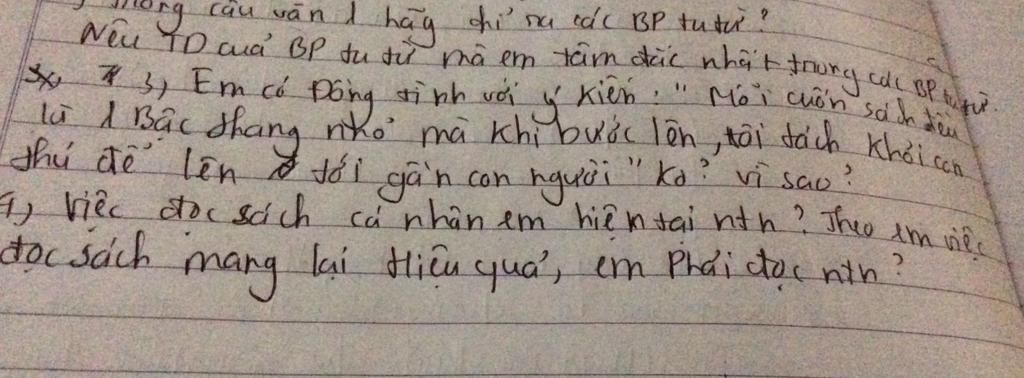 Trong câu văn 1 hãy chỉ ra các BP tu từ?
Nêu TD cuả BP tu từ mà em tâm đắc nhất trong các BP tu từ.
3, Em có Đồng tình với ý kiến: "Mỗi cuốn sách đều
là 1 Bậc thang nhỏ mà khi bước lên, tôi tách khỏi con
thú để lên tới gần con người" ko? vì sao?
4, Việc đọc sách cá nhân em hiện tại ntn? Theo em việc
đọc sách mang lại Hiệu quả, em Phải đọc ntn?